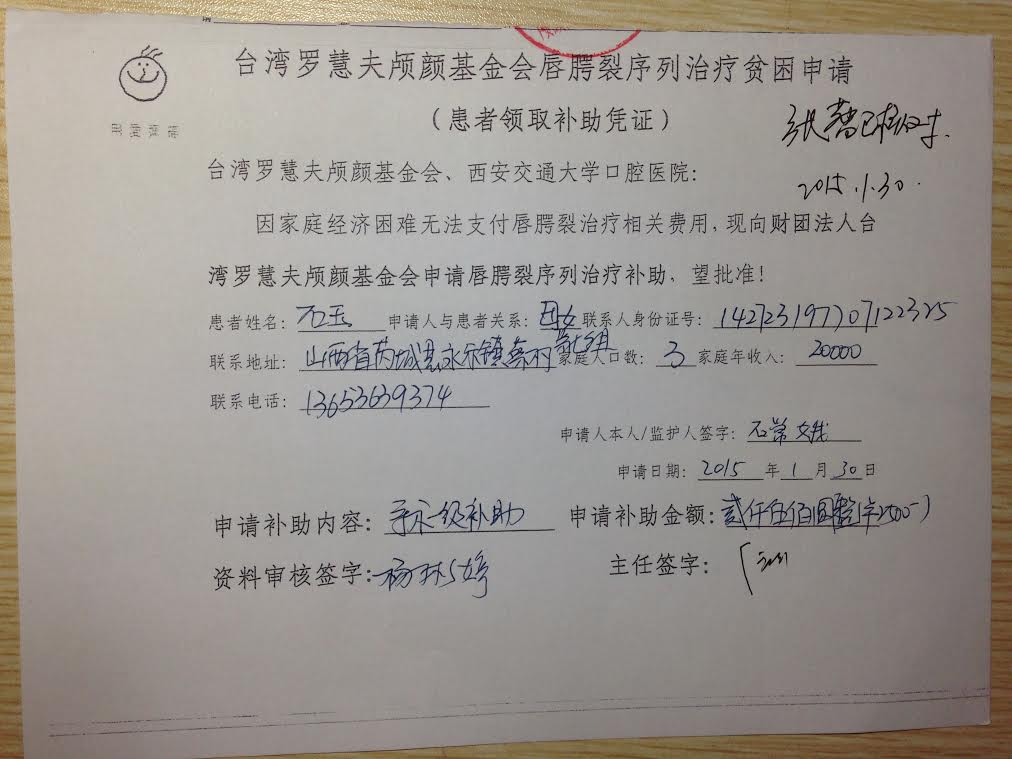 台湾罗慧夫颅颜基金会唇腭裂序列治疗贫困申请
(患者领取补助凭证)
张蓉已核对
2015.1.30.
台湾罗慧夫颅颜基金会、西安交通大学口腔医院:
因家庭经济困难无法支付唇腭裂治疗相关费用,现向财团法人台
湾罗慧夫颅颜基金会申请唇腭裂序列治疗补助、望批准!
患者姓名: 石玉 申请人与患者关系: 母女 联系人身份证号: 142723197707122325
联系地址: 山西省芮城县永乐镇蔡村第七组 家庭人口数: 3 家庭年收入: 20000
联系电话: 13653639374
申请人本人/监护人签字: 石
申请日期: 2015 年 1 月 30 日
申请补助内容: 手术级补助 申请补助金额: 贰仟伍佰圆整
资料审核签字: 杨 婷 主任签字: